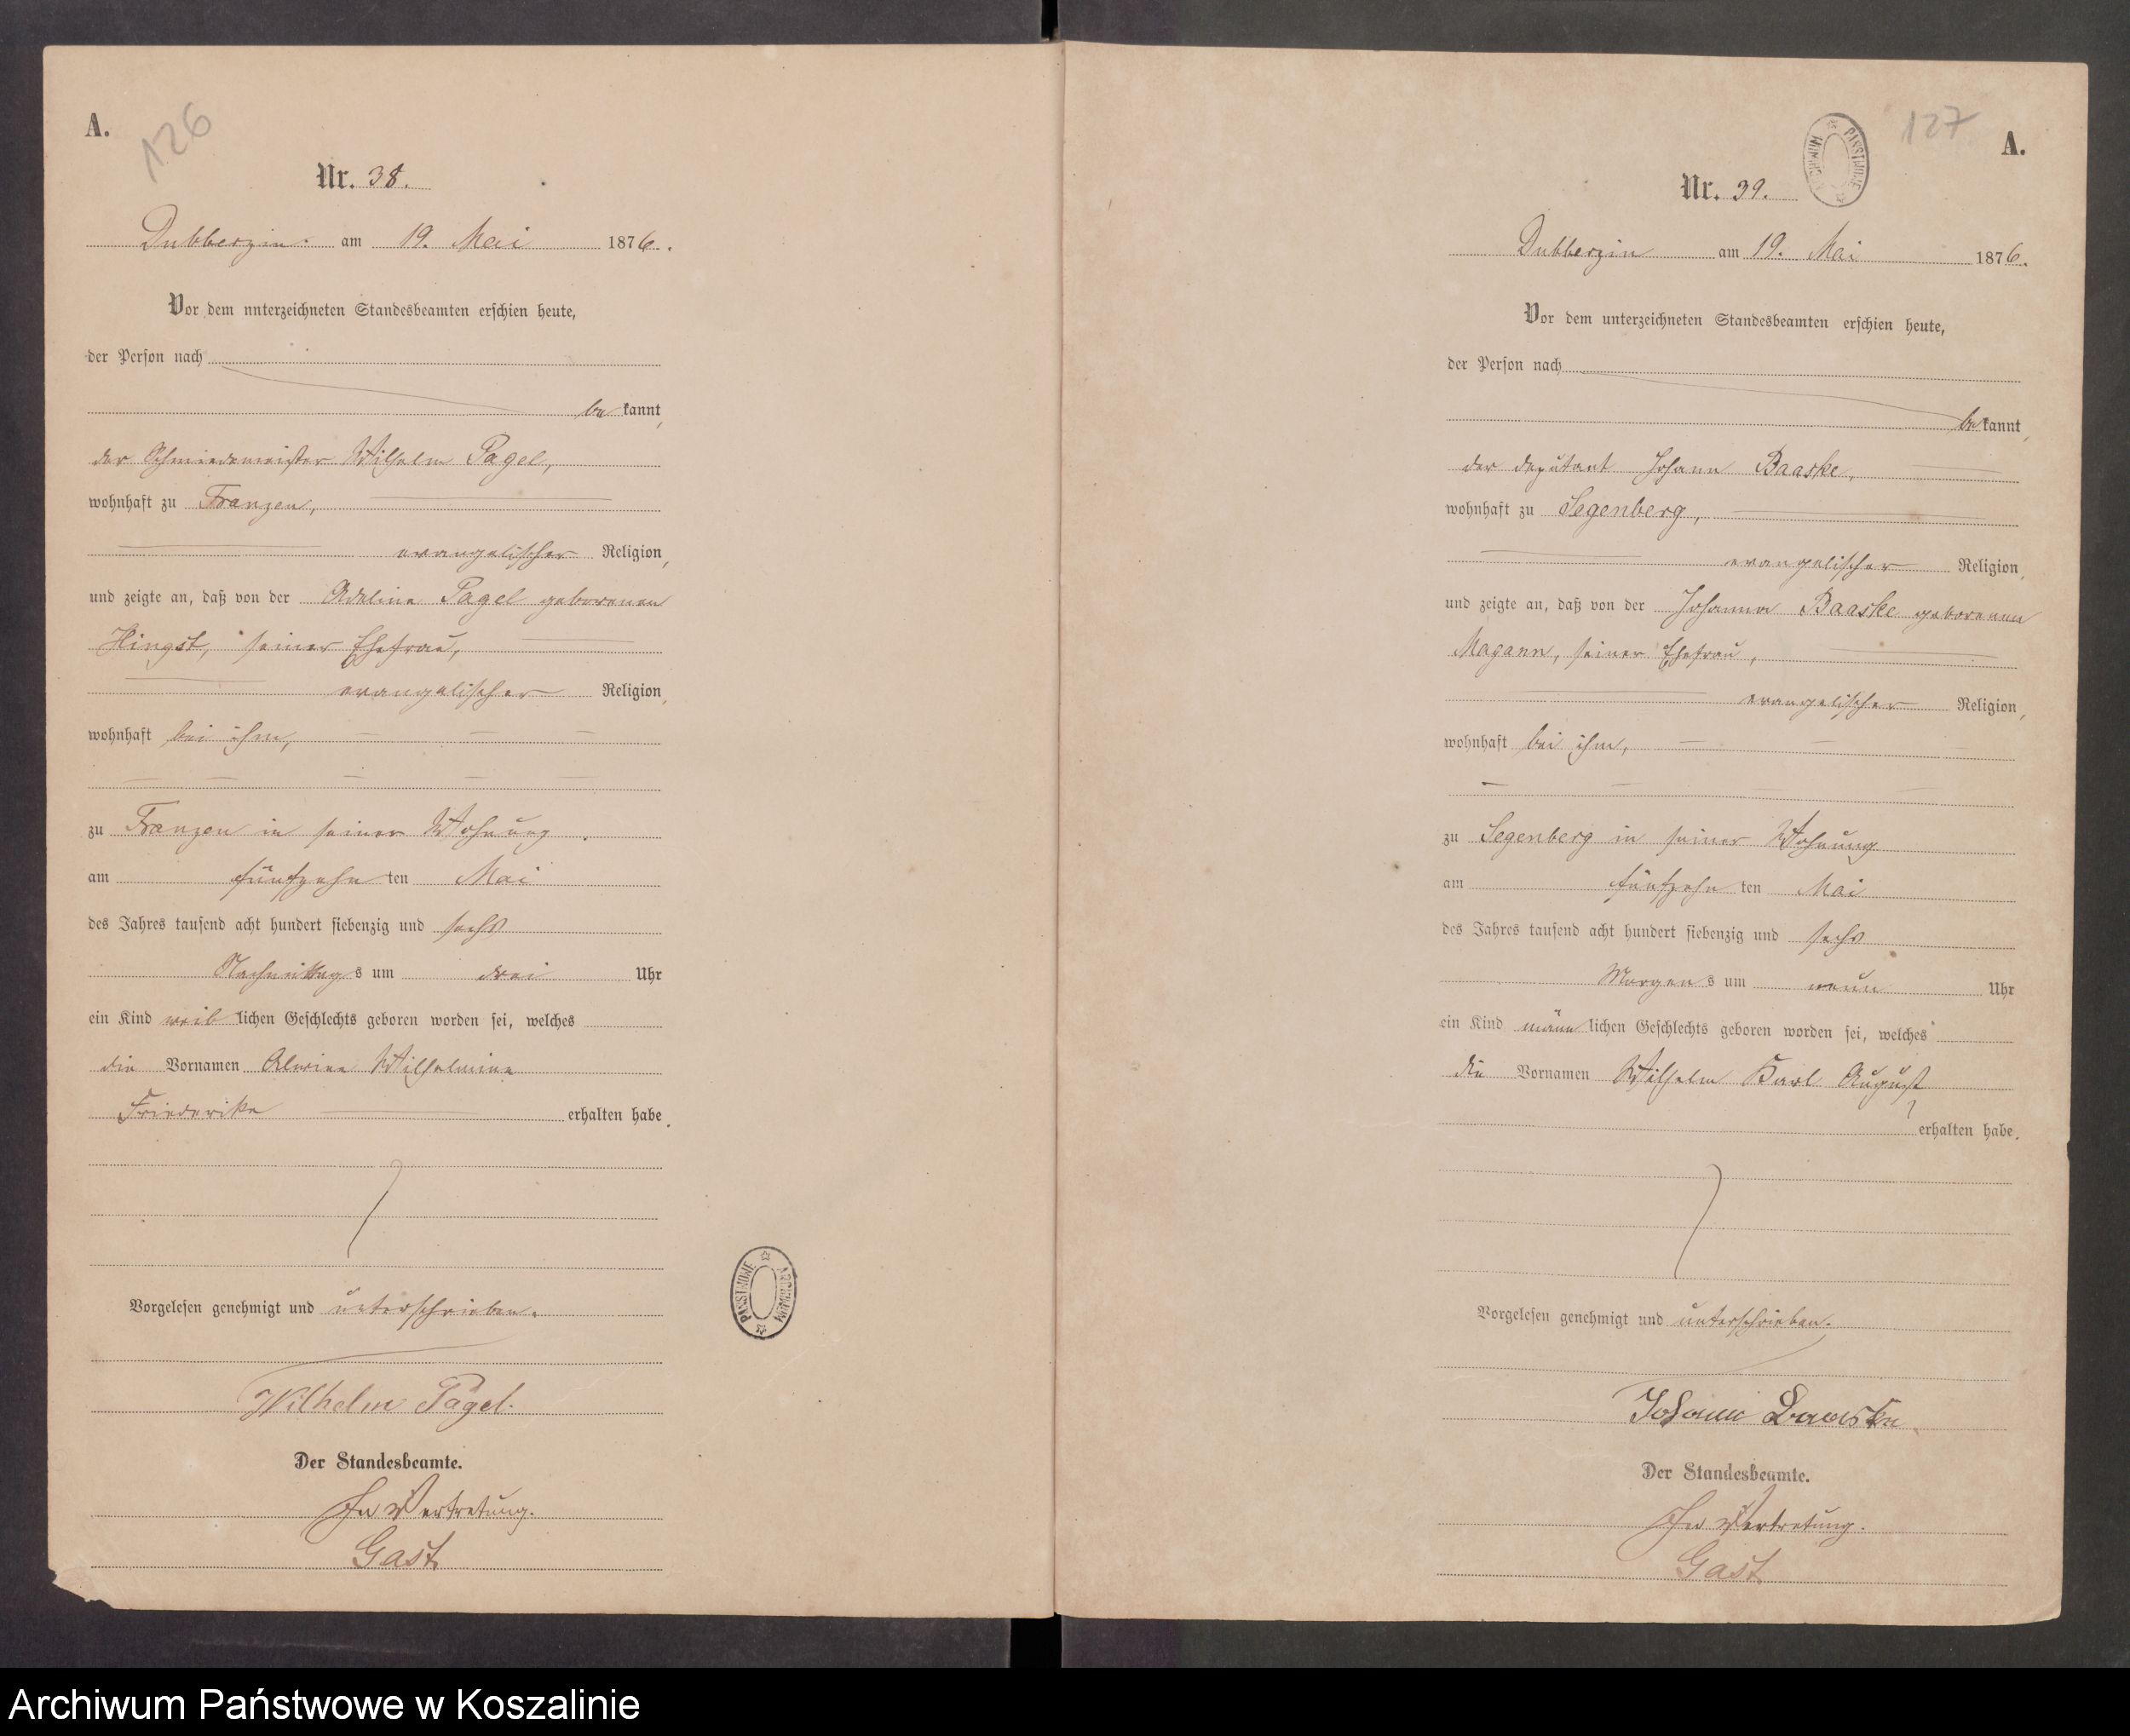 A.
126
Nr. 38.
Dubberzin am 19. Mai 1876.
Vor dem unterzeichneten Standesbeamten erschien heute,
der Person nach
bekannt,
der Schmiedemeister Wilhelm Pagel,
wohnhaft zu Franzen,
evangelischer Religion,
und zeigte an, daß von der Adeline Pagel geborenen
Hingst, seiner Ehefrau,
evangelischer Religion,
wohnhaft bei ihm,
zu Franzen in seiner Wohnung
am fünfzehn ten Mai
des Jahres tausend acht hundert siebenzig und sechs
Nachmittags um drei Uhr
ein Kind weiblichen Geschlechts geboren worden sei, welches
die Vornamen Alwine Wilhelmine
Friederike erhalten habe.
Vorgelesen genehmigt und unterschrieben.
Wilhelm Pagel.
Der Standesbeamte.
In Vertretung.
Gast
ARCHIWUM PAŃSTWOWE
127
A.
ARCHIWUM PAŃSTWOWE
Nr. 39.
Dubberzin am 19. Mai 1876.
Vor dem unterzeichneten Standesbeamten erschien heute,
der Person nach
bekannt,
der deputant Johann Baaske,
wohnhaft zu Segenberg,
evangelischer Religion,
und zeigte an, daß von der Johanna Baaske geborenen
Magann, seiner Ehefrau,
evangelischer Religion,
wohnhaft bei ihm,
zu Segenberg in seiner Wohnung
am fünfzehn ten Mai
des Jahres tausend acht hundert siebenzig und sechs
Morgens um neun Uhr
ein Kind männlichen Geschlechts geboren worden sei, welches
die Vornamen Wilhelm Karl August
erhalten habe.
Vorgelesen genehmigt und unterschrieben.
Johann Baaske
Der Standesbeamte.
In Vertretung.
Gast
Archiwum Państwowe w Koszalinie